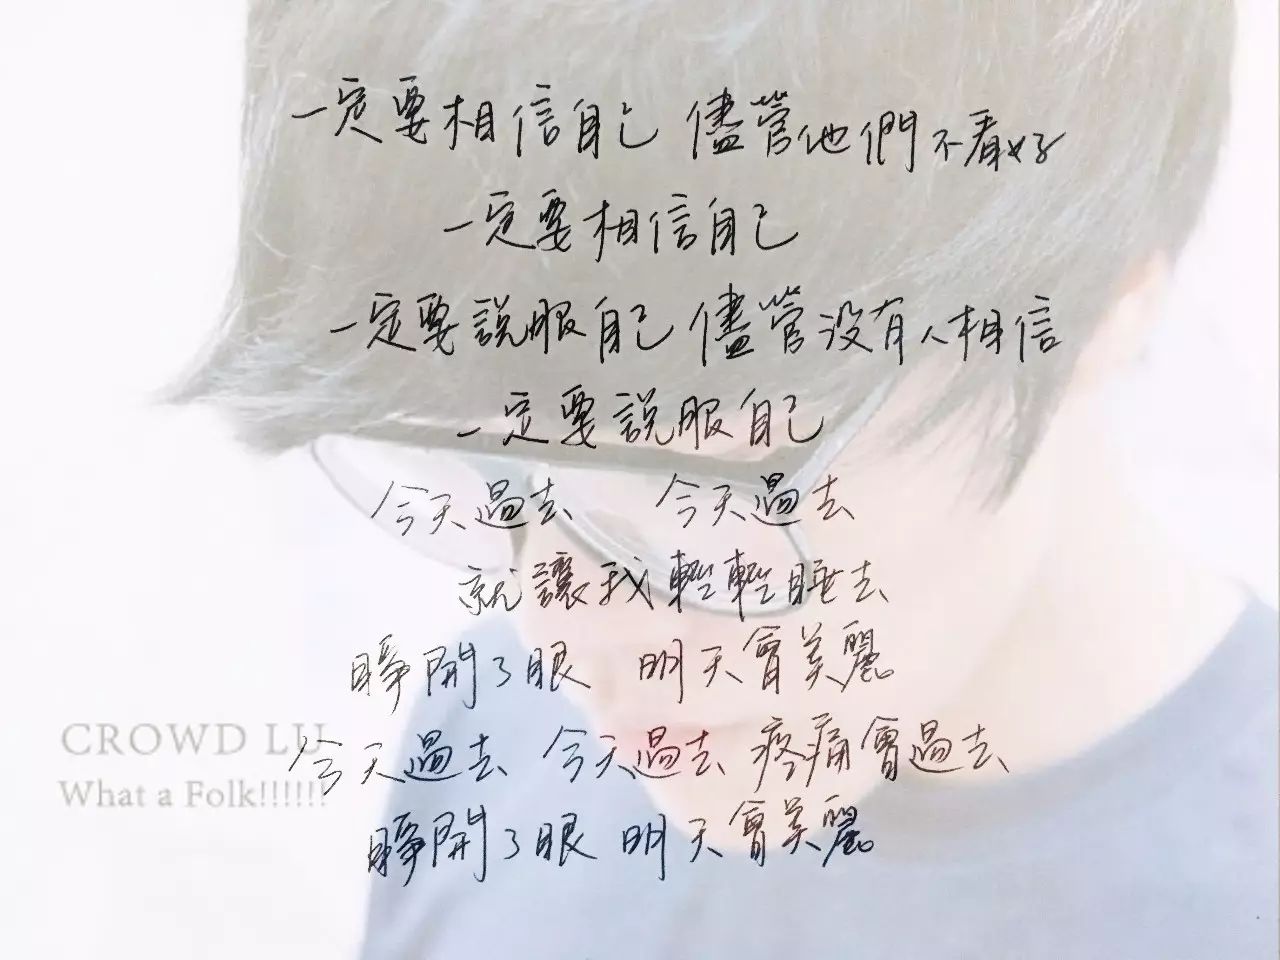 一定要相信自己 儘管他們不看好
一定要相信自己
一定要說服自己 儘管沒有人相信
一定要說服自己
今天過去 今天過去
就讓我輕輕睡去
睜開了眼 明天會美麗
CROWD LU
今天過去 今天過去 疼痛會過去
What a Folk!!!!!!
睜開了眼 明天會美麗